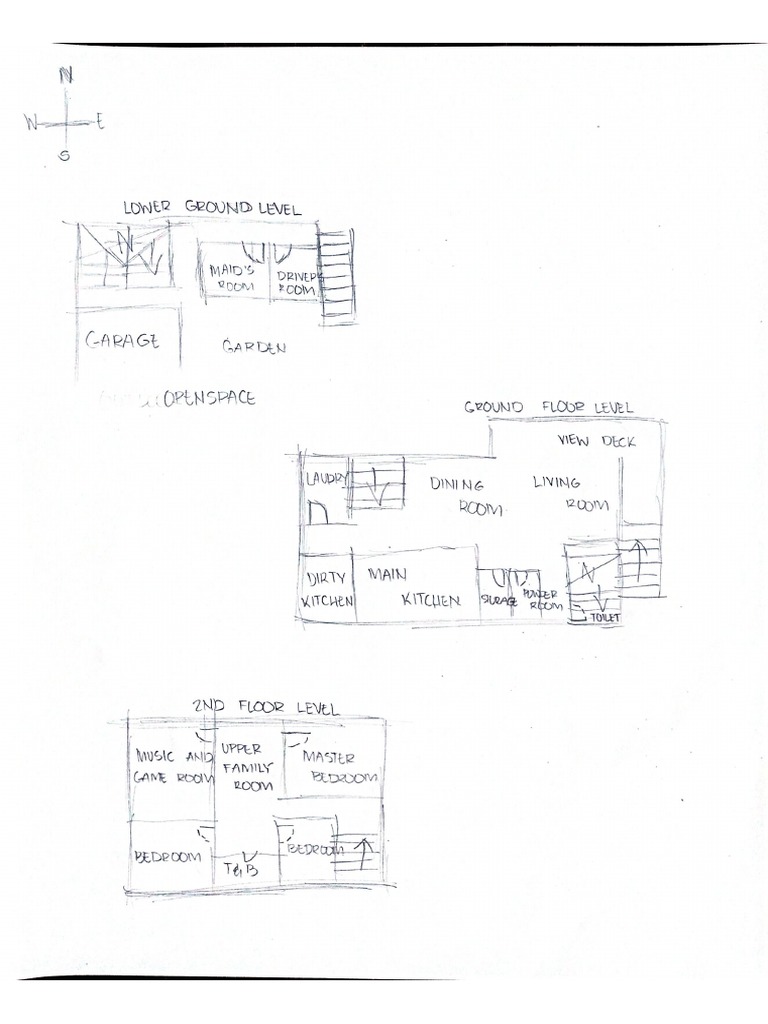 N
W E
S
LOWER GROUND LEVEL
MAID'S
ROOM
DRIVER'S
ROOM
GARAGE
GARDEN
OPEN SPACE
GROUND FLOOR LEVEL
VIEW DECK
LAUDRY
DINING
ROOM
LIVING
ROOM
DIRTY
KITCHEN
MAIN
KITCHEN
STORAGE
POWDER
ROOM
TOILET
2ND FLOOR LEVEL
MUSIC AND
GAME ROOM
UPPER
FAMILY
ROOM
MASTER
BEDROOM
BEDROOM
T&B
BEDROOM